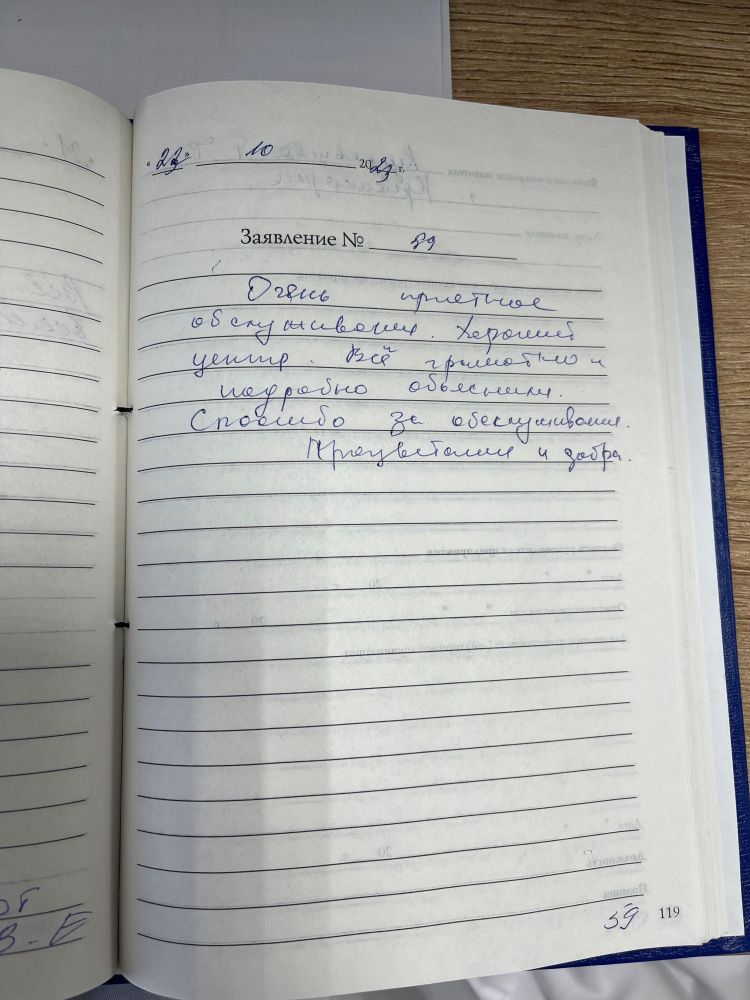 "23" 10 2023 г.
Заявление № 59
Очень приятное
обслуживание. Хороший
центр. Всё грамотно и
подробно объяснили.
Спасибо за обслуживание.
Процветания и добра.
59 119
от
В-Е